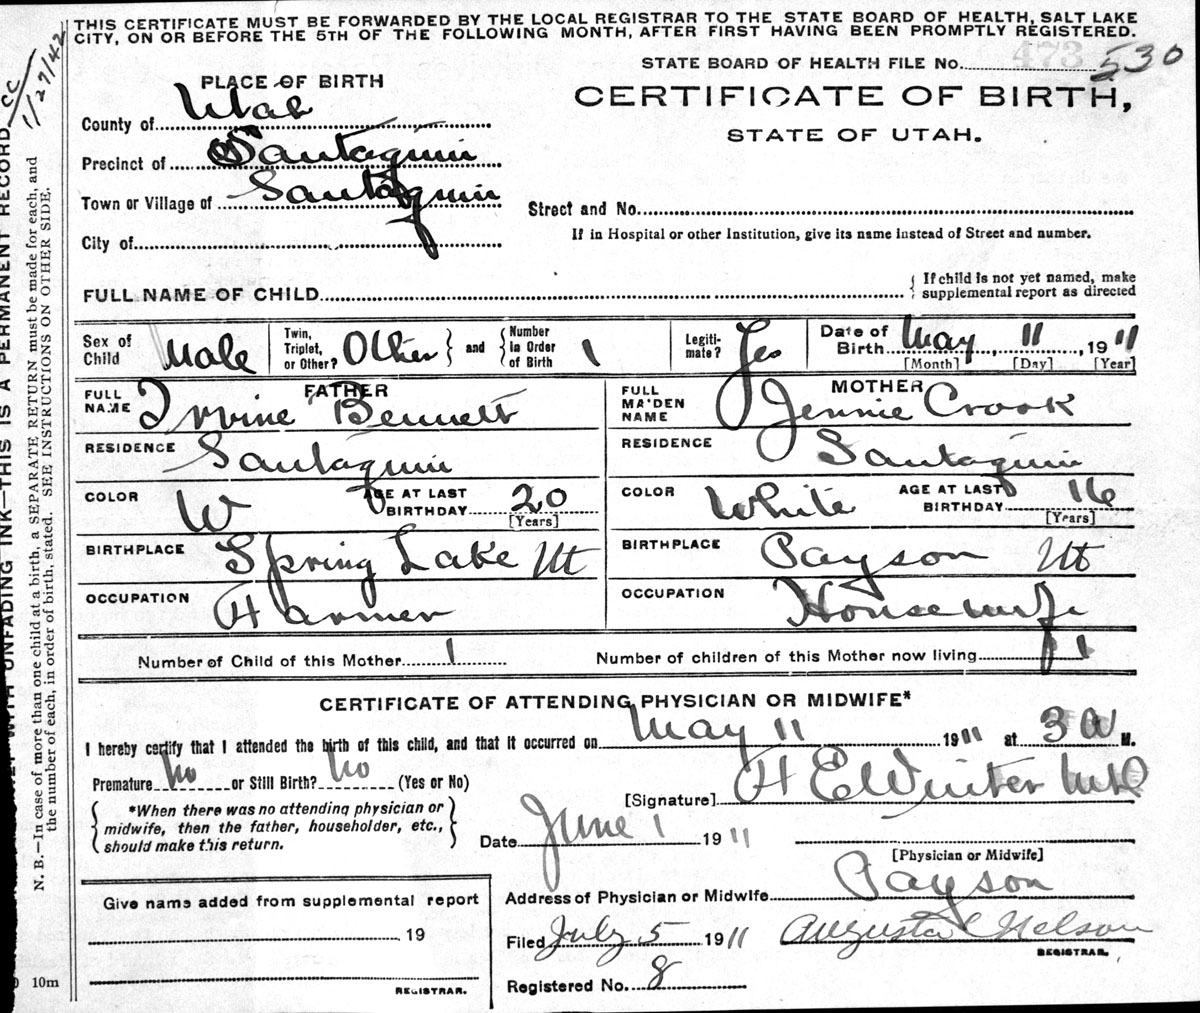 THIS CERTIFICATE MUST BE FORWARDED BY THE LOCAL REGISTRAR TO THE STATE BOARD OF HEALTH, SALT LAKE
CITY, ON OR BEFORE THE 5TH OF THE FOLLOWING MONTH, AFTER FIRST HAVING BEEN PROMPTLY REGISTERED.
STATE BOARD OF HEALTH FILE No. 530
CERTIFICATE OF BIRTH,
STATE OF UTAH.
PLACE OF BIRTH
County of Utah
Precinct of Santaquin
Town or Village of Santaquin
City of
Street and No.
If in Hospital or other Institution, give its name instead of Street and number.
FULL NAME OF CHILD
If child is not yet named, make
supplemental report as directed
Sex of Child Male
Twin, Triplet, or Other? Other and Number in Order of Birth 1
Legiti-mate? Yes
Date of Birth May 11, 1911
[Month] [Day] [Year]
FATHER
FULL NAME Irvine Bennett
RESIDENCE Santaquin
COLOR W AGE AT LAST BIRTHDAY 20
[Years]
BIRTHPLACE Spring Lake Ut
OCCUPATION Farmer
MOTHER
FULL MAIDEN NAME Jennie Crook
RESIDENCE Santaquin
COLOR White AGE AT LAST BIRTHDAY 16
[Years]
BIRTHPLACE Payson Ut
OCCUPATION Housewife
Number of Child of this Mother 1 Number of children of this Mother now living 1
CERTIFICATE OF ATTENDING PHYSICIAN OR MIDWIFE*
I hereby certify that I attended the birth of this child, and that it occurred on May 11 1911 at 3 a M.
Premature No or Still Birth? No (Yes or No)
[Signature] H E Winter
*When there was no attending physician or
midwife, then the father, householder, etc.,
should make this return.
Date June 1 1911
[Physician or Midwife]
Address of Physician or Midwife Payson
Give name added from supplemental report
19
REGISTRAR.
Filed July 5 1911 Augusta Nelson
REGISTRAR.
Registered No. 8
10m
CC
11/27/42
UNFADING INK—THIS IS A PERMANENT RECORD
N. B.—In case of more than one child at a birth, a SEPARATE RETURN must be made for each, and
the number of each, in order of birth, stated. SEE INSTRUCTIONS ON OTHER SIDE.